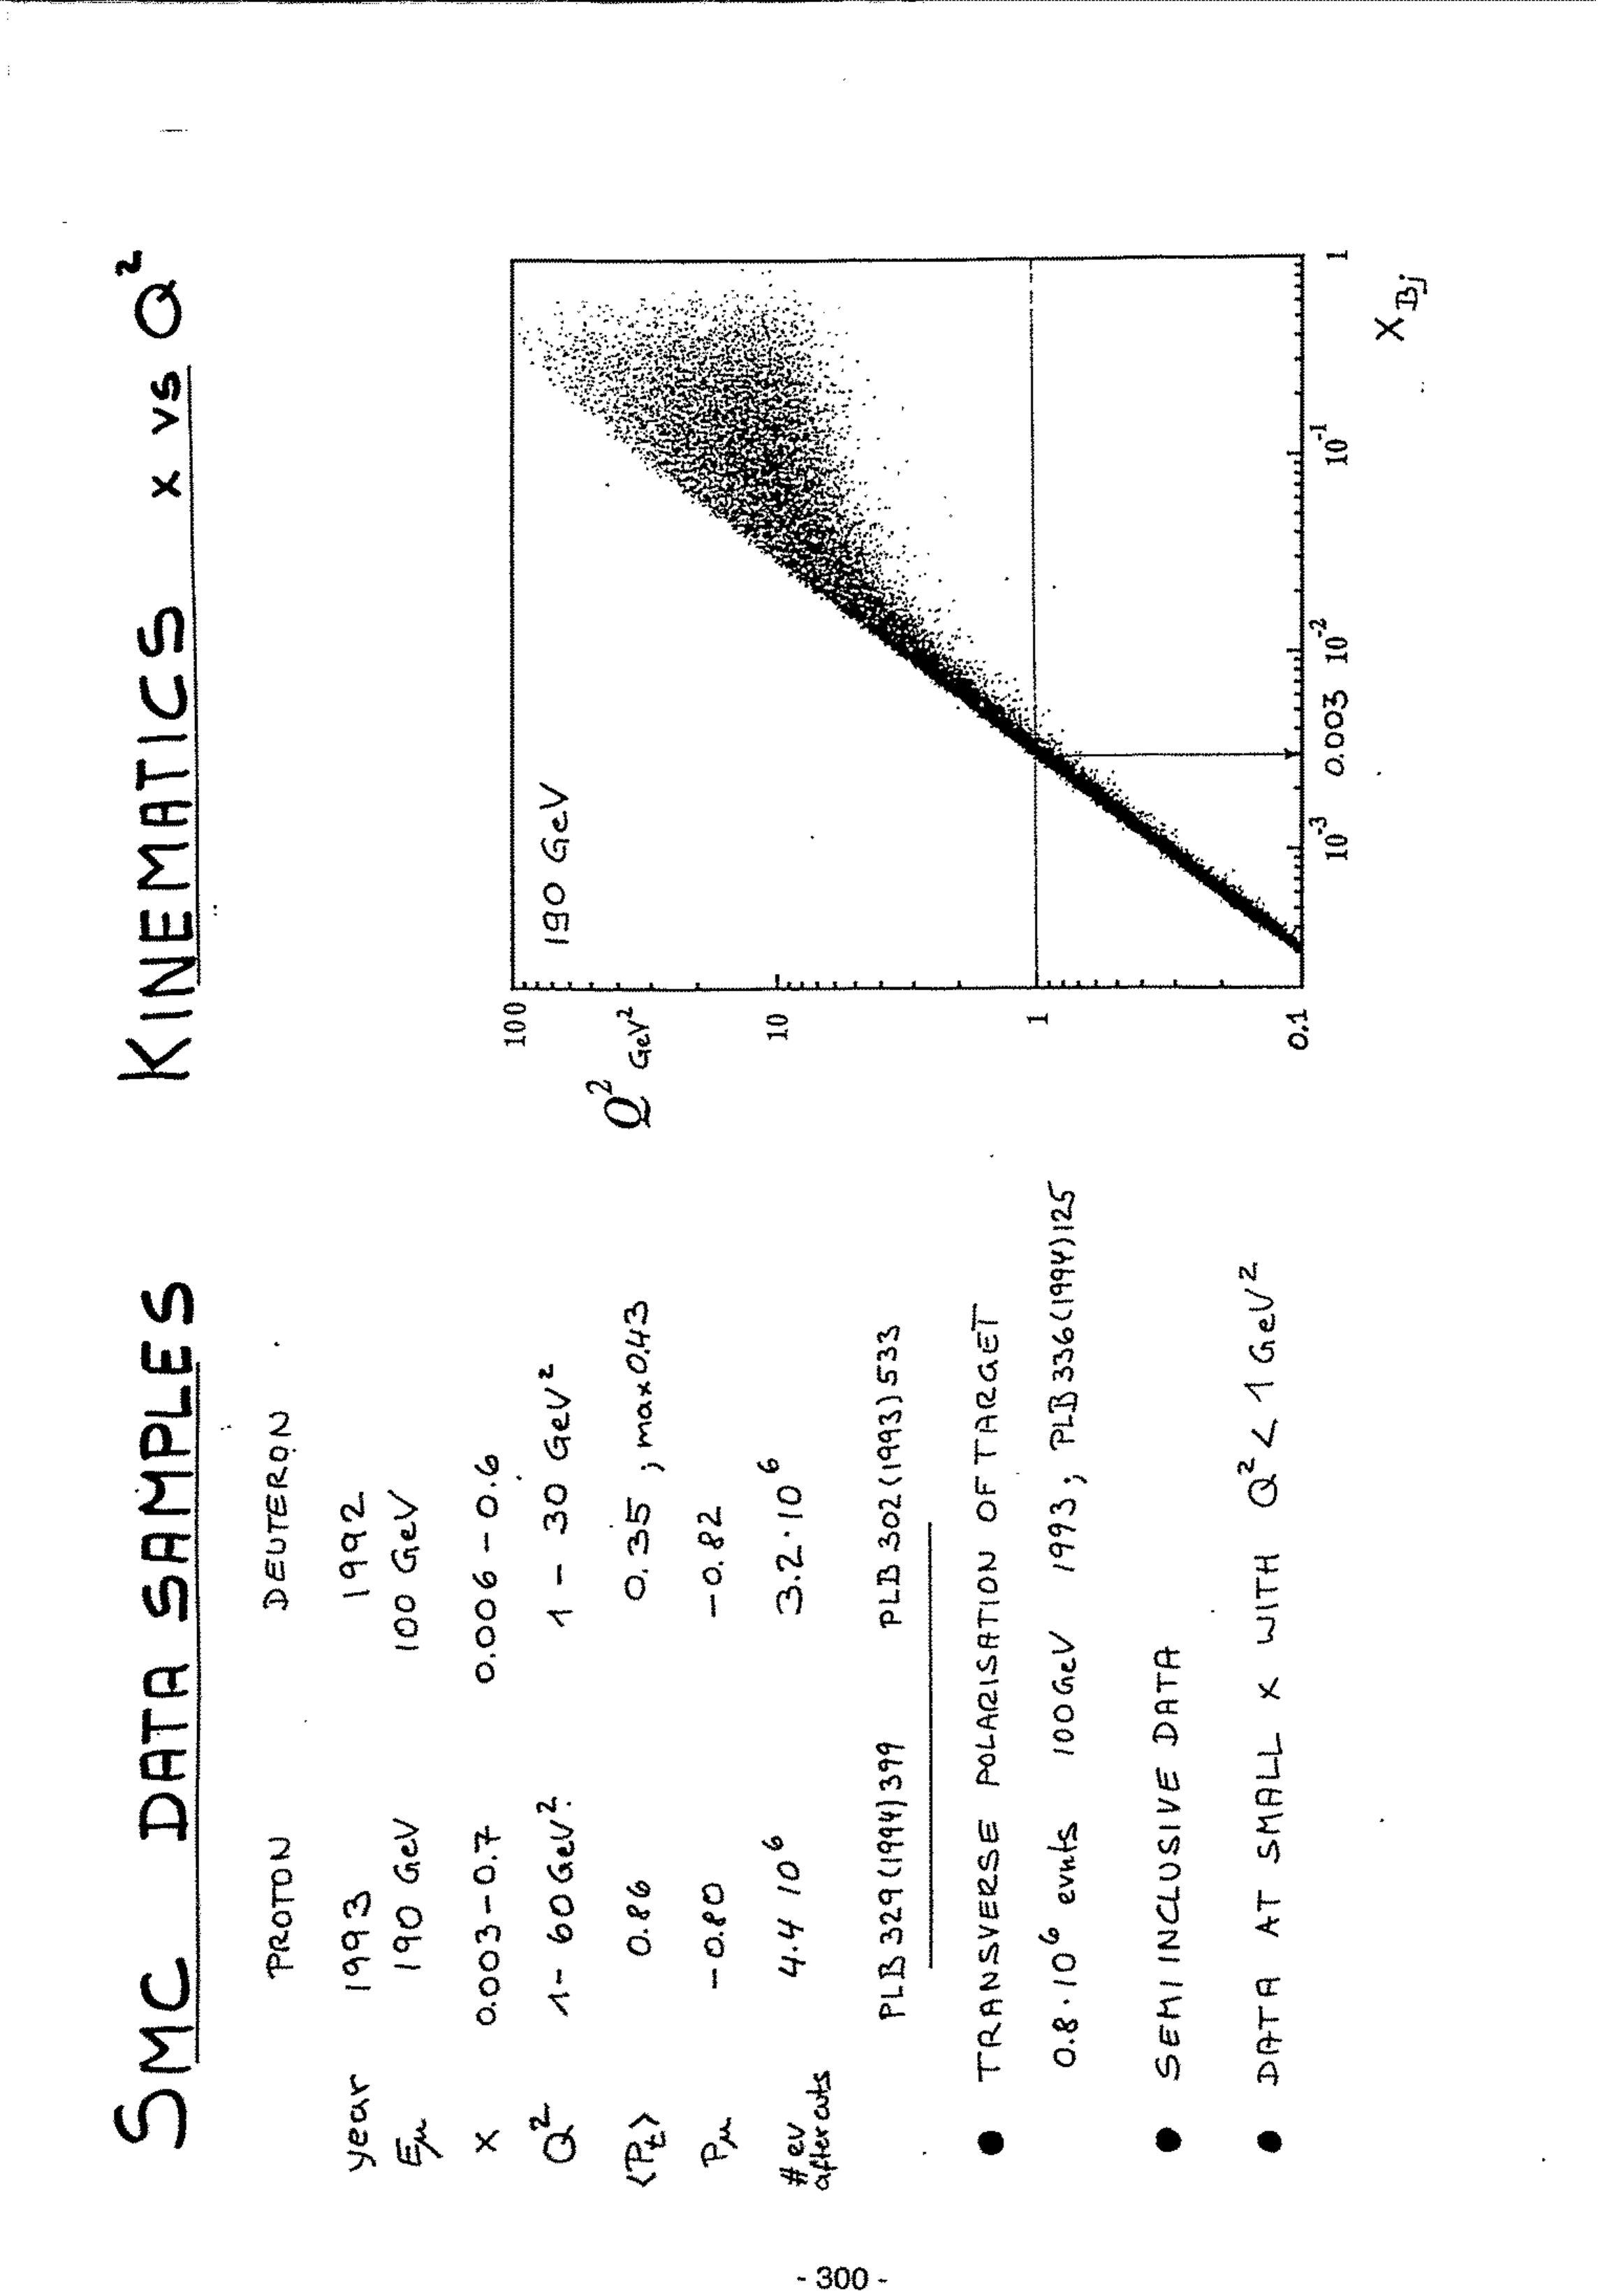 SMC DATA SAMPLES
PROTON DEUTERON
year 1993 1992
Eμ 190 GeV 100 GeV
x 0.003-0.7 0.006-0.6
Q² 1-60 GeV² 1-30 GeV²
⟨Pt⟩ 0.86 0.35 ; max 0.43
Pμ -0.80 -0.82
# ev after cuts 4.4 10⁶ 3.2·10⁶
PLB 329(1994)399 PLB 302(1993)533
● TRANSVERSE POLARISATION OF TARGET
0.8·10⁶ events 100GeV 1993; PLB 336(1994)125
● SEMIINCLUSIVE DATA
● DATA AT SMALL x WITH Q² < 1 GeV²
KINEMATICS x vs Q²
Q² GeV²
100
190 GeV
10
1
0.1
10⁻³ 0.003 10⁻² 10⁻¹ 1
X Bj
- 300 -